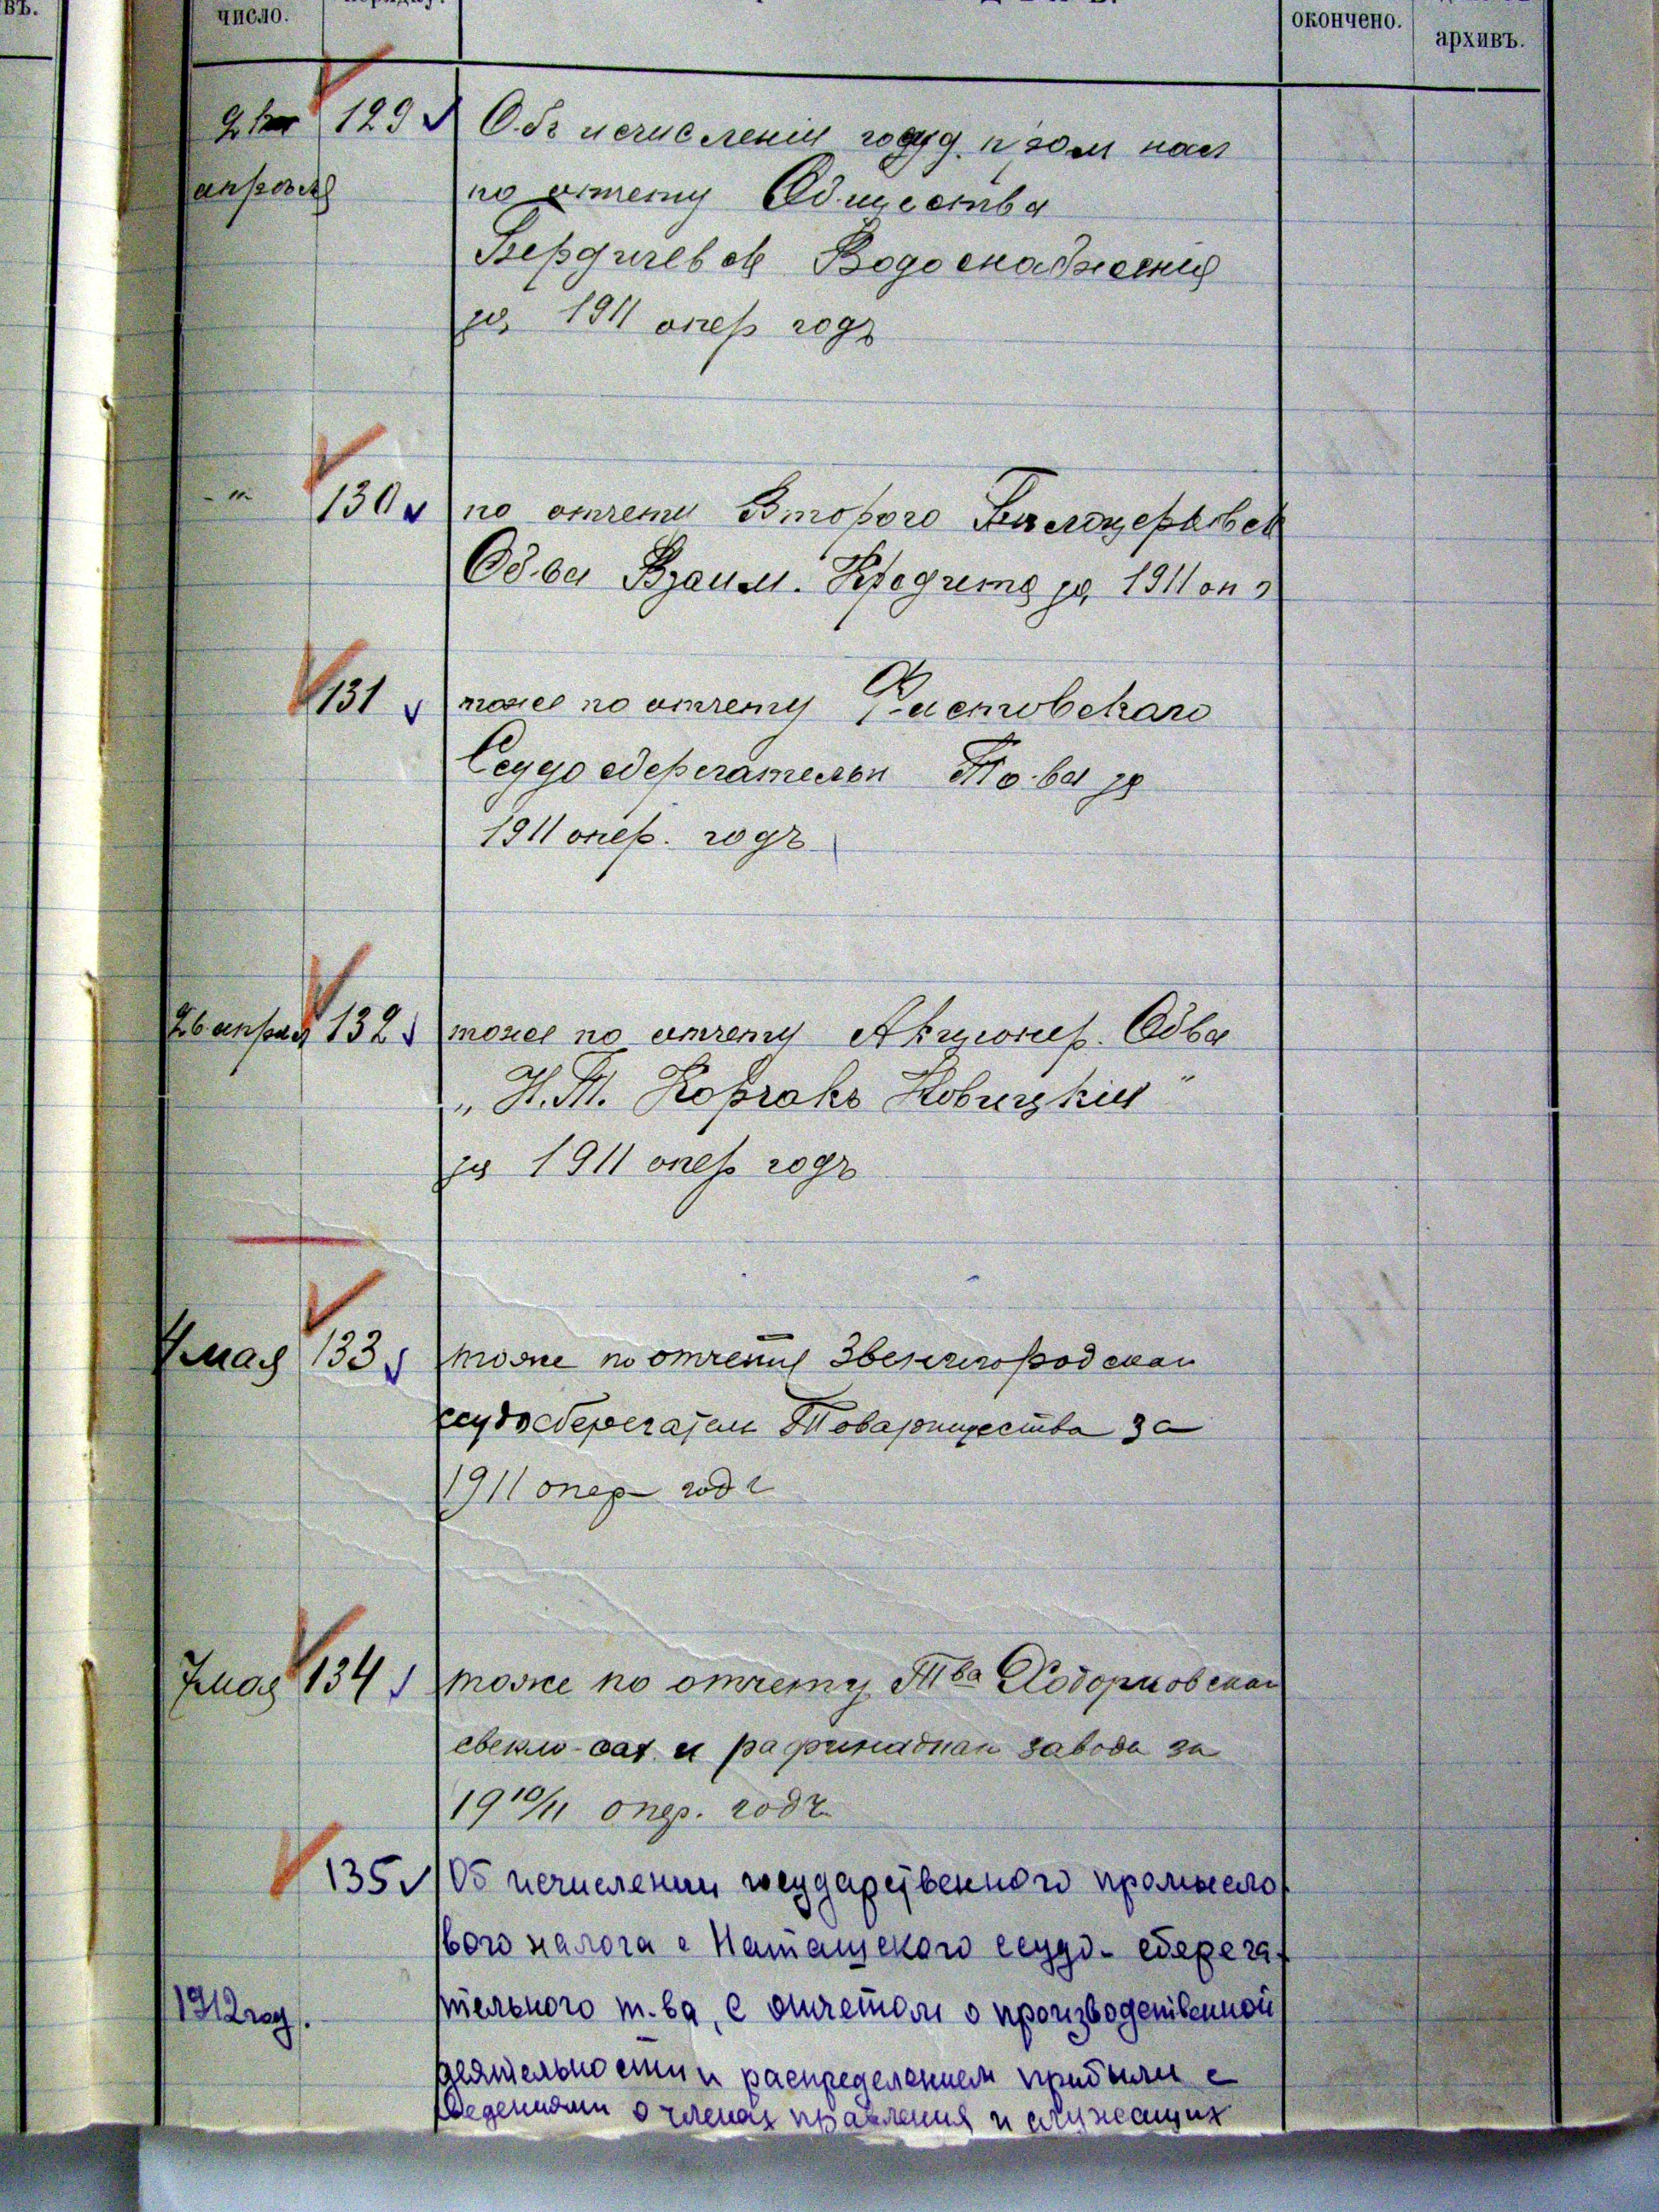 въ.
число.
окончено.
архивъ.
129
Объ исчисленіи госуд. пром нал
апрѣля
по отчету Общества
Бердичевск Водоснабженія
за 1911 опер годъ
- " -
130
по отчету Второго Бѣлоцерковск
Об-ва Взаим. Кредита за 1911 оп г
131
тоже по отчету Фастовскаго
Ссудосберегательн То-ва за
1911 опер. годъ
26 апрѣля 132
тоже по отчету Акціонер. Обва
„Н.Т. Корчакъ Новицкій"
за 1911 опер годъ
4 мая 133
тоже по отчету Звенигородскаг
ссудосберегател Товарищества за
1911 опер годъ
7 мая 134
тоже по отчету Тва Ходорковскаг
свекло-сах. и рафинаднаг завода за
1910/11 опер. годъ
135
Об исчислении государственного промысло
вого налога с Наташского ссудо-сберега-
1912 год.
тельного т-ва, с отчетом о производственной
деятельности и распределением прибыли с
ведениями о членах правления и служащих